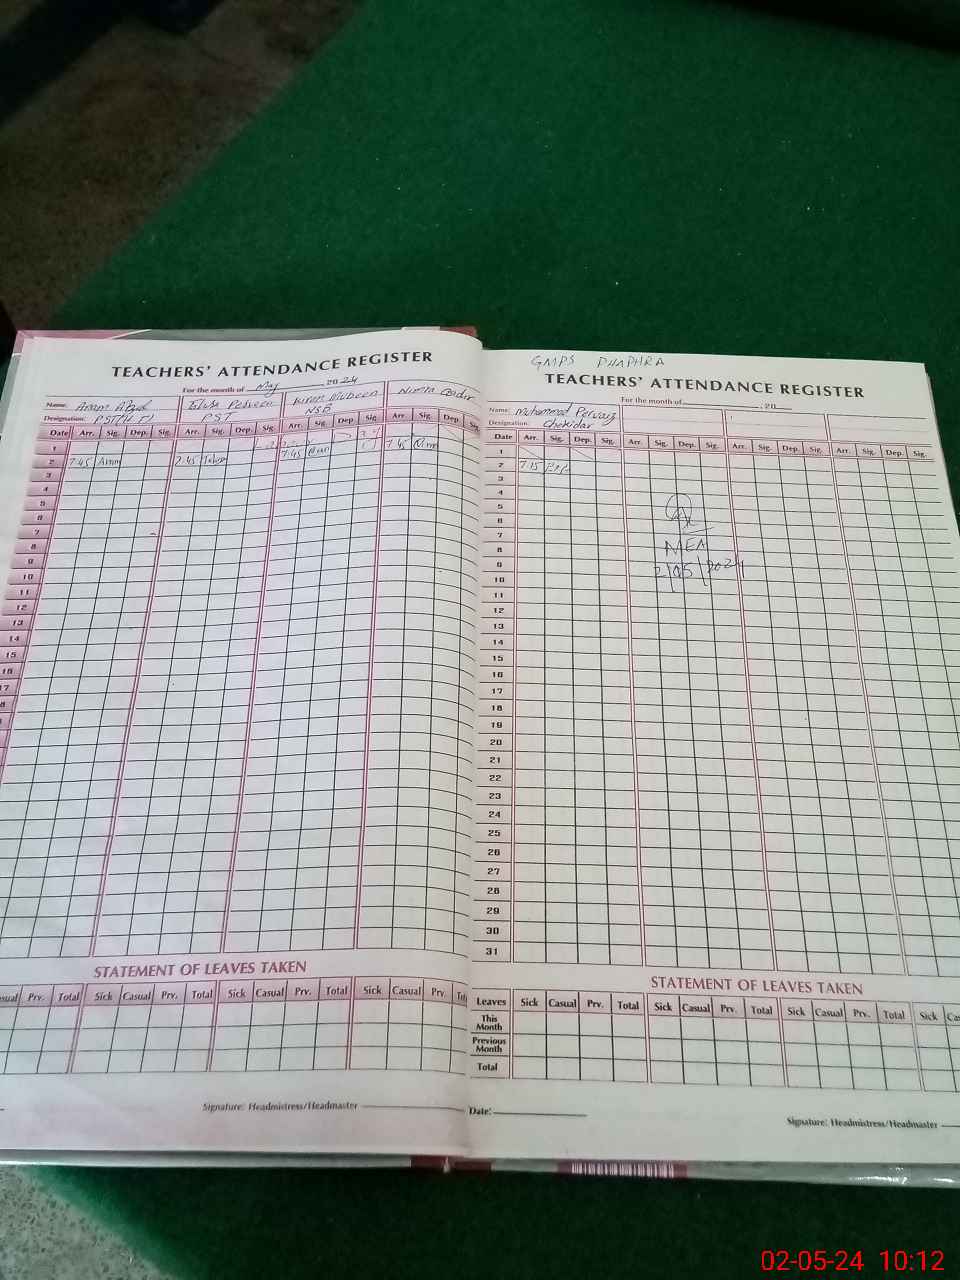 TEACHERS' ATTENDANCE REGISTER
For the month of May, 2024
Name:
Designation: PST
Date Arr. Sig. Dep. Sig. Arr. Sig. Dep. Sig. Arr. Sig. Dep. Sig. Arr. Sig. Dep. Sig.
1
2 7.45 7.45 7.45 7.45
3
4
5
6
7
8
9
10
11
12
13
14
15
16
17
STATEMENT OF LEAVES TAKEN
Prv. Total Sick Casual Prv. Total Sick Casual Prv. Total Sick Casual Prv.
Signature: Headmistress/Headmaster
GMPS DHAPHRA
TEACHERS' ATTENDANCE REGISTER
For the month of , 20
Name: Muhammad Pervaiz
Designation: Chokidar
Date Arr. Sig. Dep. Sig. Arr. Sig. Dep. Sig. Arr. Sig. Dep. Sig. Arr. Sig. Dep. Sig.
1
2 7.15
3
4
5
6
7
8 MEA
9 2/05/2024
10
11
12
13
14
15
16
17
18
19
20
21
22
23
24
25
26
27
28
29
30
31
STATEMENT OF LEAVES TAKEN
Leaves Sick Casual Prv. Total Sick Casual Prv. Total Sick Casual Prv. Total Sick
This Month
Previous Month
Total
Date:
Signature: Headmistress/Headmaster
02-05-24 10:12